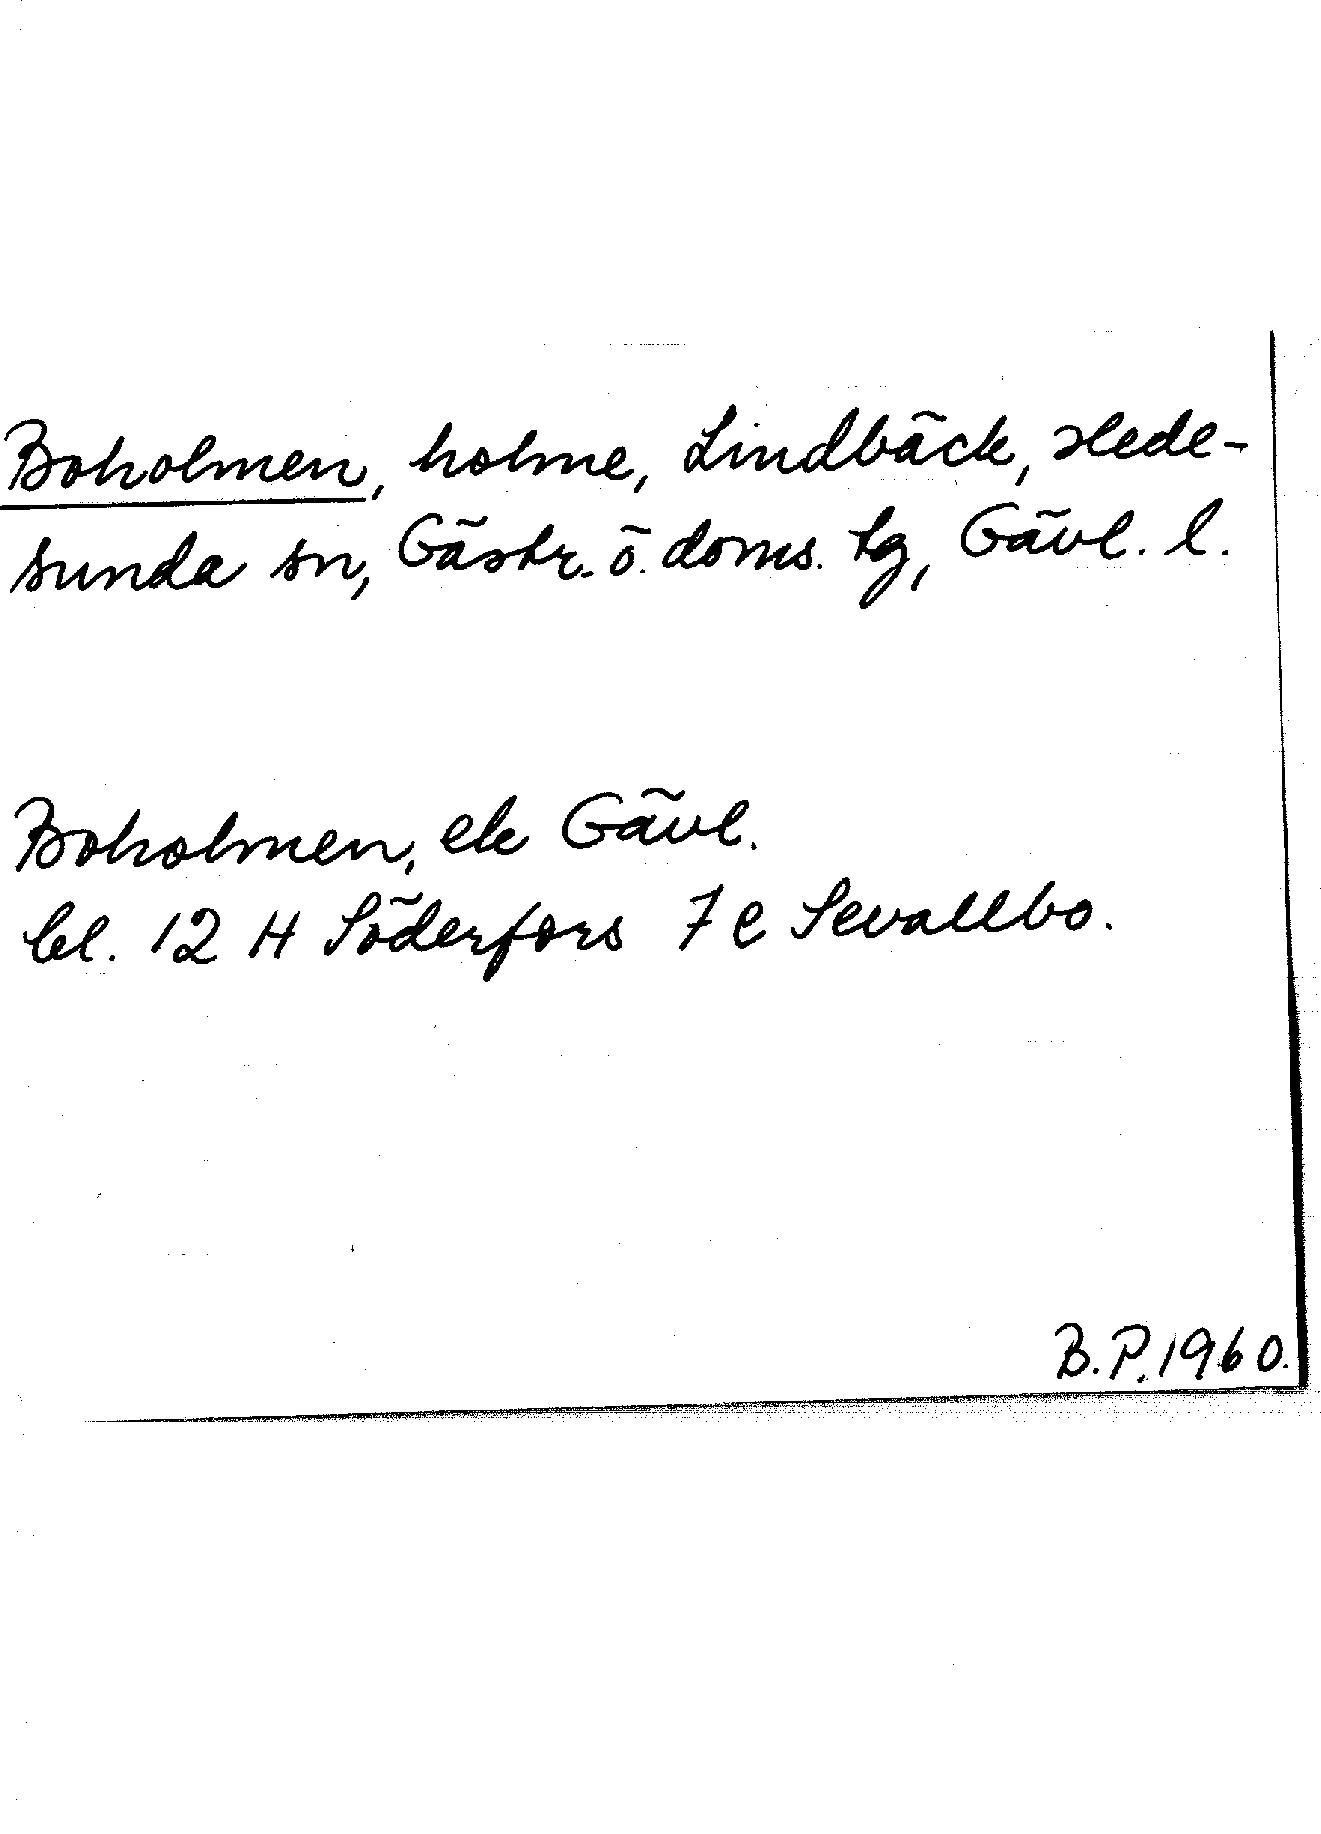 Boholmen, holme, Lindbäck, Hede-
sunda sn, Gästr. ö. doms. tg, Gävl. l.
Boholmen, ek Gävl.
bl. 12 H Söderfors 7 e Sevallbo.
B.P. 1960.